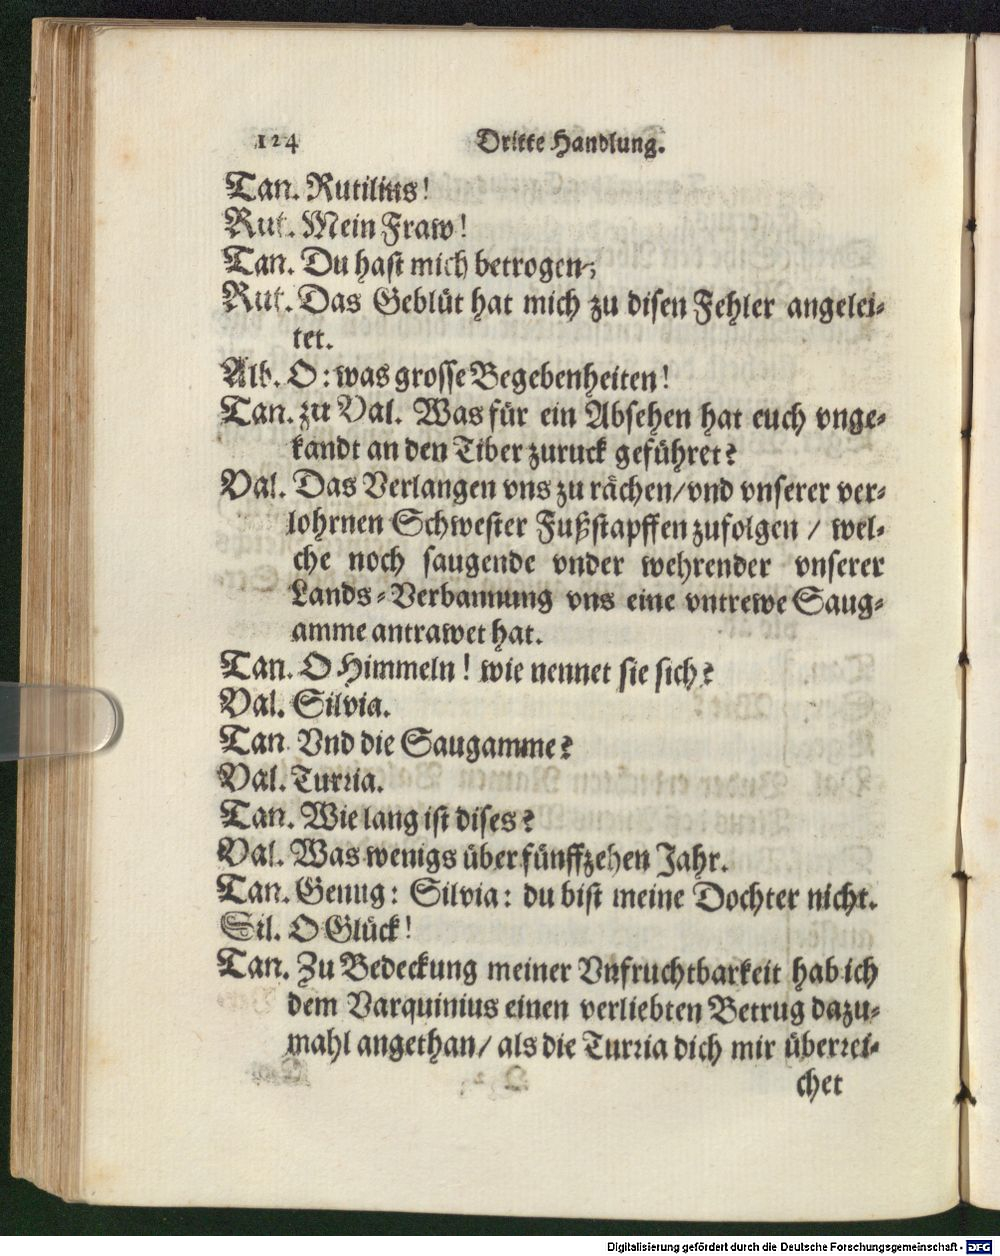 124 Dritte Handlung.
Tan. Rutilius!
Rut. Mein Fraw!
Tan. Du hast mich betrogen;
Rut. Das Geblüt hat mich zu disen Fehler angelei-
tet.
Alb. O: was grosse Begebenheiten!
Tan. zu Val. Was für ein Absehen hat euch vnge-
kandt an den Tiber zuruck geführet?
Val. Das Verlangen vns zu rächen/ vnd vnserer ver-
lohrnen Schwester Fußstapffen zufolgen / wel-
che noch saugende vnder wehrender vnserer
Lands-Verbannung vns eine vntrewe Saug-
amme antrawet hat.
Tan. O Himmeln! wie nennet sie sich?
Val. Silvia.
Tan. Vnd die Saugamme?
Val. Turria.
Tan. Wie lang ist dises?
Val. Was wenigs über fünffzehen Jahr.
Tan. Genug: Silvia: du bist meine Dochter nicht.
Sil. O Glück!
Tan. Zu Bedeckung meiner Vnfruchtbarkeit hab ich
dem Varquinius einen verliebten Betrug dazu-
mahl angethan/ als die Turria dich mir überrei-
chet
Digitalisierung gefördert durch die Deutsche Forschungsgemeinschaft - DFG